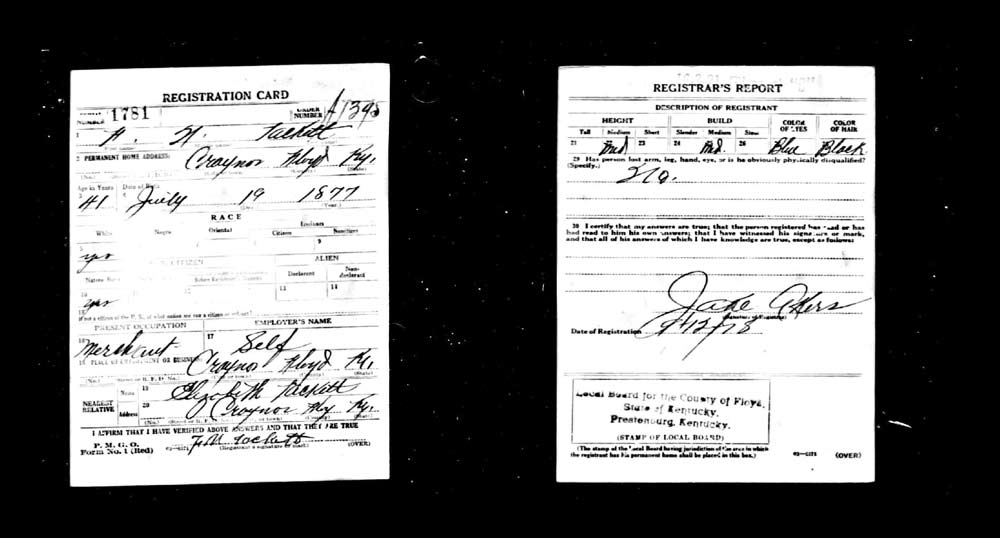 REGISTRATION CARD
SERIAL NUMBER 1781 ORDER NUMBER A1395
1 Tackett
2 PERMANENT HOME ADDRESS: Craynor Floyd Ky.
(No.) (State)
Age in Years Date of Birth
41 July 19 1877
(Year.)
RACE
White Negro Oriental Indian
Citizen Noncitizen
5 9
yes
CITIZEN ALIEN
Native Born Declarant Non-declarant
10 13 14
yes
15
If not a citizen of the U. S., of what nation are you a citizen or subject?
PRESENT OCCUPATION EMPLOYER'S NAME
16 Merchant 17 Self
18 PLACE OF EMPLOYMENT OR BUSINESS: Craynor Floyd Ky.
(No.) (Street or R. F. D. No.) (County) (State)
NEAREST RELATIVE Name 19 Elizabeth Tackett
Address 20 Craynor Ky.
(No.) (State)
I AFFIRM THAT I HAVE VERIFIED ABOVE ANSWERS AND THAT THEY ARE TRUE
P. M. G. O.
Form No. 1 (Red) 03-6171 Tackett
(Registrant's signature or mark) (OVER)
REGISTRAR'S REPORT
DESCRIPTION OF REGISTRANT
HEIGHT BUILD COLOR OF EYES COLOR OF HAIR
Tall Medium Short Slender Medium Stout
21 Med 23 24 Md. 26 Blue Black
29 Has person lost arm, leg, hand, eye, or is he obviously physically disqualified?
(Specify.)
No.
30 I certify that my answers are true; that the person registered has read or has
had read to him his own answers; that I have witnessed his signature or mark,
and that all of his answers of which I have knowledge are true, except as follows:
Jake Akers
(Signature of Registrar)
Date of Registration 9/12/18
Local Board for the County of Floyd,
State of Kentucky,
Prestonburg, Kentucky.
(STAMP OF LOCAL BOARD)
(The stamp of the Local Board having jurisdiction of the area in which
the registrant has his permanent home shall be placed in this box.)
03-6171 (OVER)